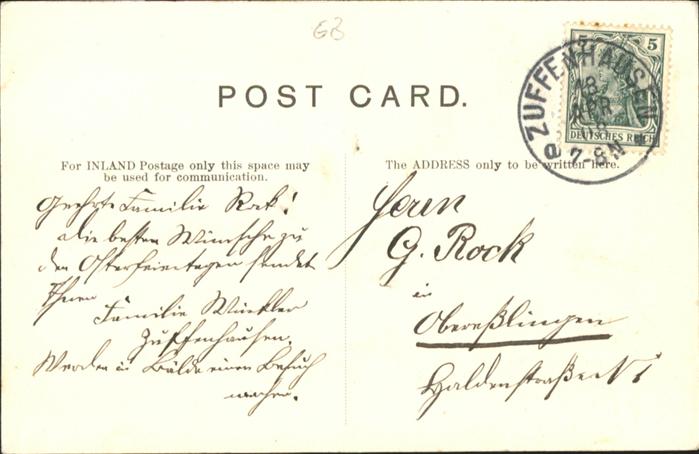 GB
POST CARD.
5 5
DEUTSCHES REICH
ZUFFENHAUSEN
18
APR
7-8N
a
For INLAND Postage only this space may
be used for communication.
Geehrte Familie Rock!
Die besten Wünsche zu
den Osterfeiertagen sendet
Ihnen
Familie Winkler
Zuffenhausen.
Werden in Bälde einen Besuch
machen.
The ADDRESS only to be written here.
Herrn
G. Rock
in
Obereßlingen
Haldenstraße N 1